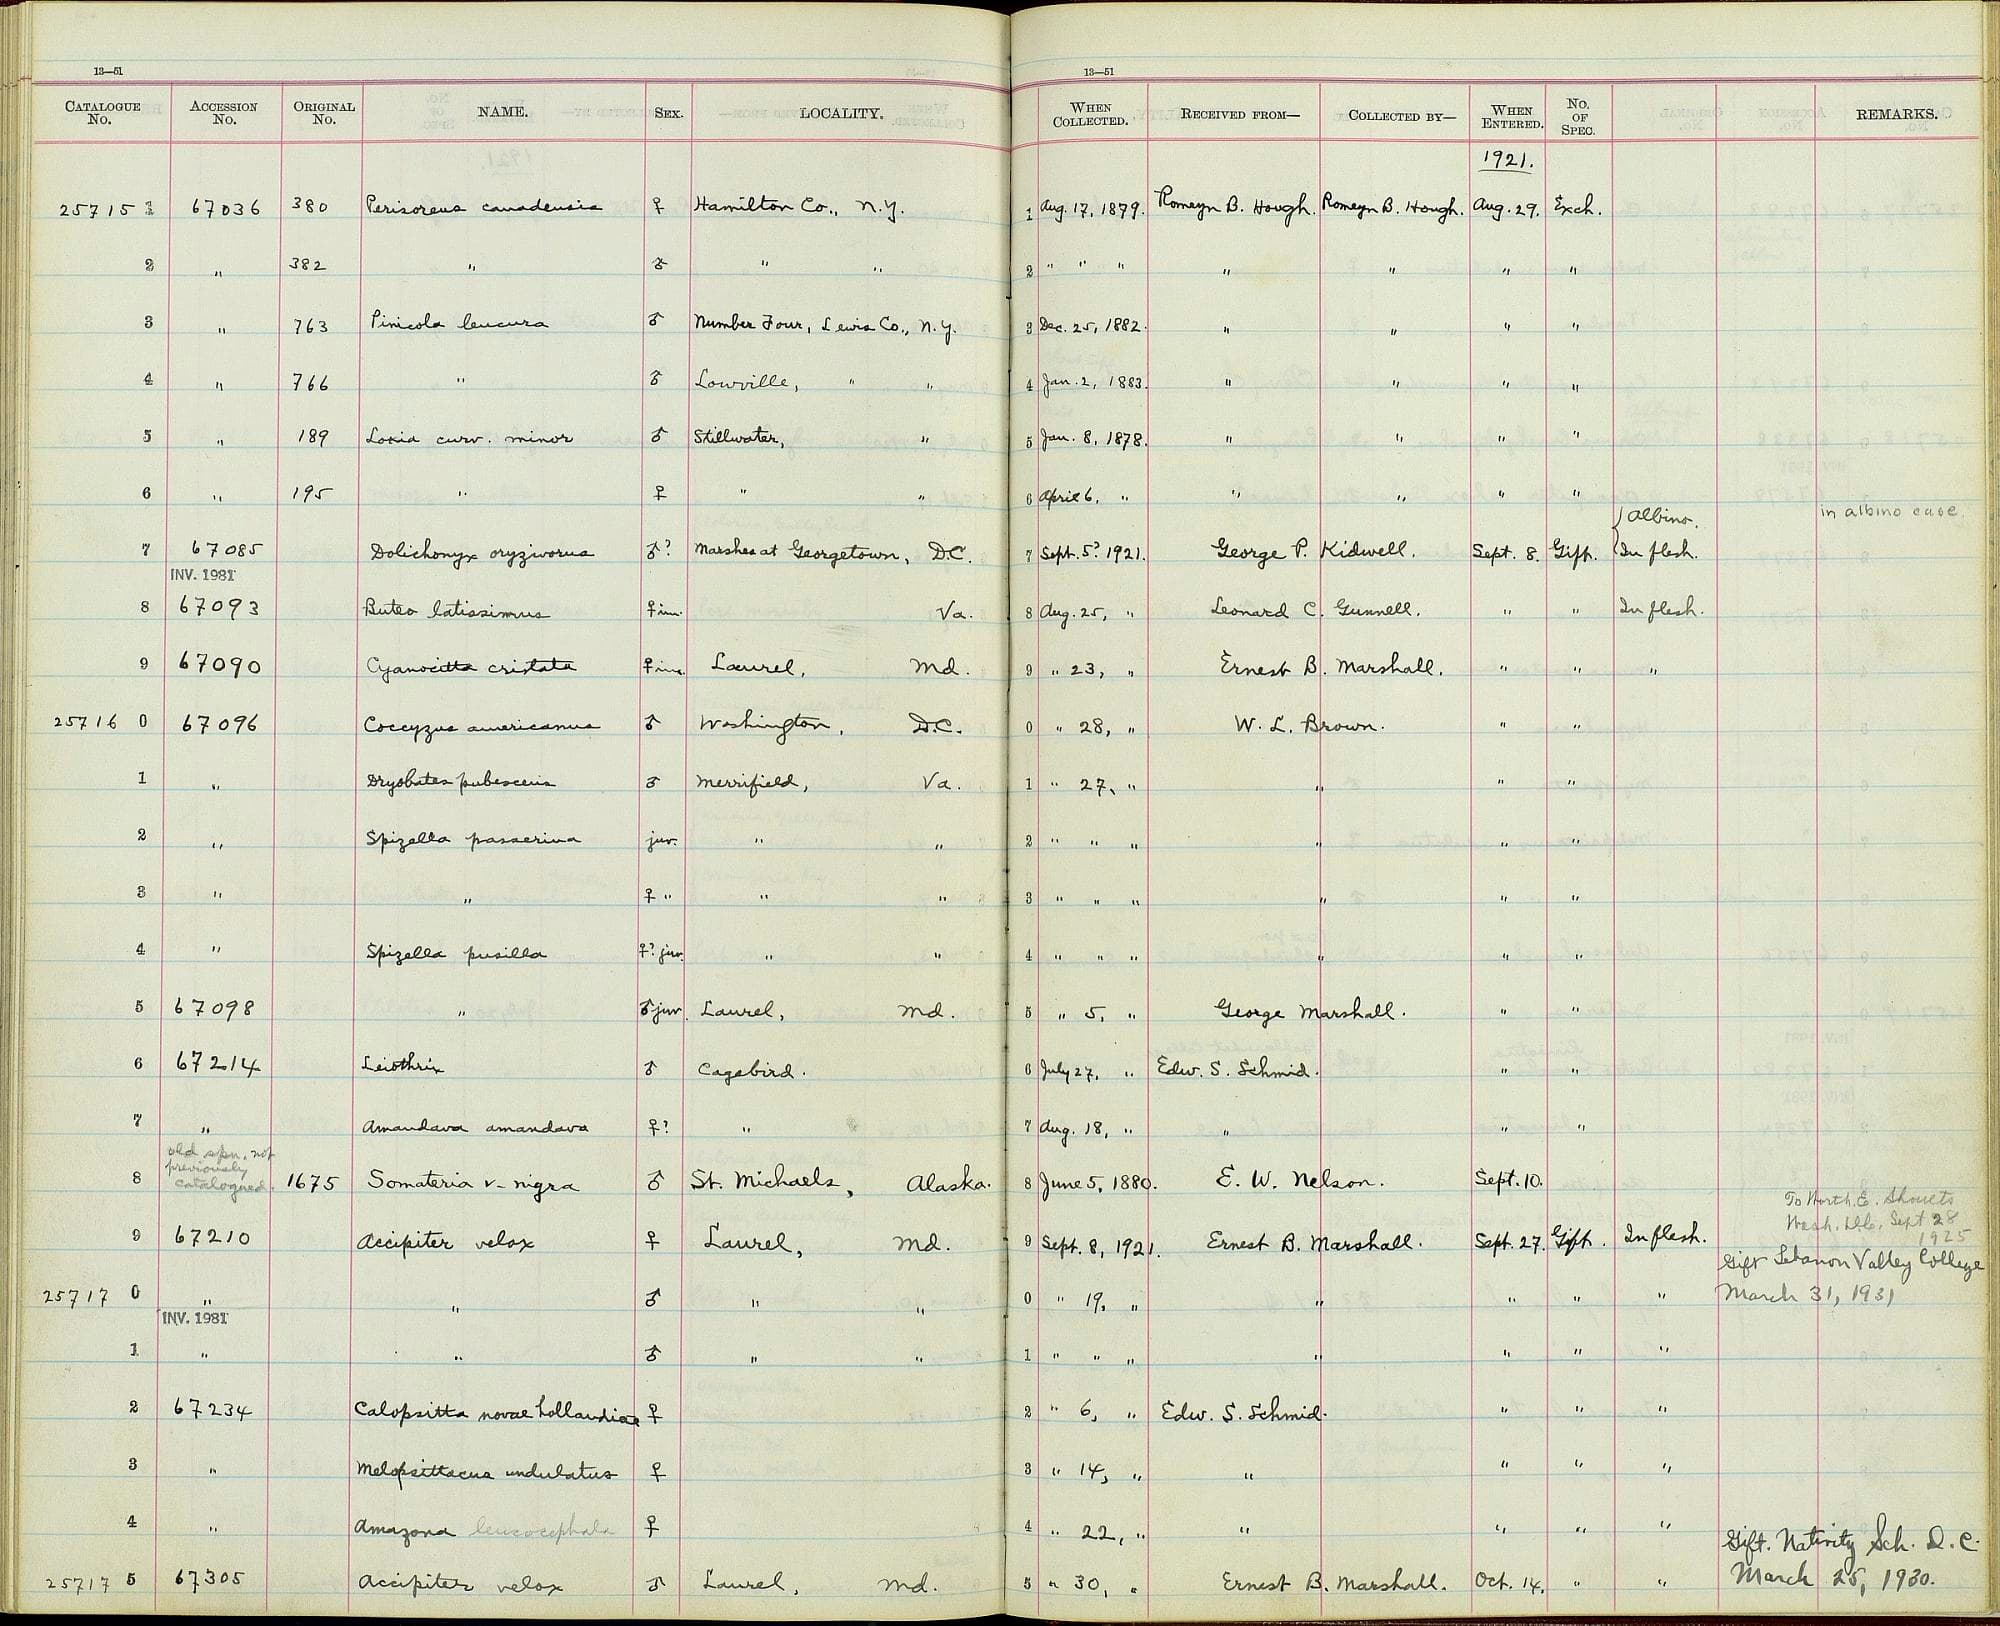 13—51
CATALOGUE No. ACCESSION No. ORIGINAL No. NAME. SEX. LOCALITY.
257151 67036 380 Perisoreus canadensis ♀ Hamilton Co., N.Y.
2 " 382 " ♂ " "
3 " 763 Pinicola leucura ♂ Number Four, Lewis Co., N.Y.
4 " 766 " ♂ Lowville, " "
5 " 189 Loxia curv. minor ♂ Stillwater, "
6 " 195 " ♀ " "
7 67085 Dolichonyx oryzivorus ♂? Marshes at Georgetown, D.C.
INV. 1981
8 67093 Buteo latissimus ♀ im. Va.
9 67090 Cyanocitta cristata ♀ im. Laurel, Md.
25716 0 67096 Coccyzus americanus ♂ Washington, D.C.
1 " Dryobates pubescens ♂ Merrifield, Va.
2 " Spizella passerina juv. " "
3 " " ♀ " " "
4 " Spizella pusilla ♀? juv. " "
5 67098 " ♂ juv. Laurel, Md.
6 67214 Leiothrix ♂ Cagebird.
7 " Amandava amandava ♀? "
old spn. not
previously
catalogued.
8 1675 Somateria v-nigra ♂ St. Michaels, Alaska.
9 67210 Accipiter velox ♀ Laurel, Md.
25717 0 " " ♂ " "
INV. 1981
1 " " ♂ " "
2 67234 Calopsitta novae hollandiae ♀
3 " Melopsittacus undulatus ♀
4 " Amazona leucocephala ♀
25717 5 67305 Accipiter velox ♂ Laurel, Md.
13—51
WHEN COLLECTED. RECEIVED FROM— COLLECTED BY— WHEN ENTERED. No. OF SPEC. REMARKS.
1921.
1 Aug. 17, 1879. Romeyn B. Hough. Romeyn B. Hough. Aug. 29. Exch.
2 " " " " " " "
3 Dec. 25, 1882. " " " "
4 Jan. 2, 1883. " " " "
5 Jan. 8, 1878. " " " "
6 April 6, " " " " "
Albino. in albino case.
7 Sept. 5? 1921. George P. Kidwell. Sept. 8. Gift. In flesh.
8 Aug. 25, " Leonard C. Gunnell. " " In flesh.
9 " 23, " Ernest B. Marshall. " " "
0 " 28, " W. L. Brown. " "
1 " 27, " " " "
2 " " " " " "
3 " " " " " "
4 " " " " " "
5 " 5, " George Marshall. " "
6 July 27, " Edw. S. Schmid. " "
7 Aug. 18, " " " "
8 June 5, 1880. E. W. Nelson. Sept. 10.
To Worth E. Shoults
Wash. D.C. Sept 28
1925
9 Sept. 8, 1921. Ernest B. Marshall. Sept. 27. Gift. In flesh.
Gift Lebanon Valley College
0 " 19, " " " " " March 31, 1931
1 " " " " " " "
2 " 6, " Edw. S. Schmid. " " "
3 " 14, " " " " "
4 " 22, " " " " "
Gift. Nativity Sch. D.C.
5 " 30, " Ernest B. Marshall. Oct. 14. " " March 25, 1930.